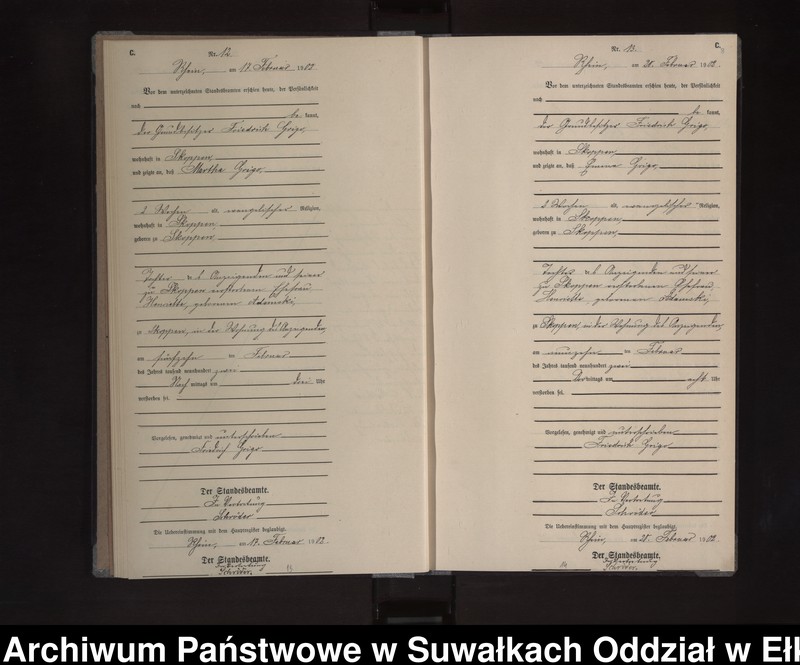 C.
Nr. 12.
Rhein, am 17. Februar 1902.
Vor dem unterzeichneten Standesbeamten erschien heute, der Persönlichkeit
nach
be kannt,
der Grundbesitzer Friedrich Grigo,
wohnhaft in Skoppen,
und zeigte an, daß Martha Grigo,
2 Wochen evangelischer Religion,
wohnhaft in Skoppen,
geboren zu Skoppen,
Tochter des Anzeigenden und seiner
zu Skoppen verstorbenen Ehefrau
Henriette, geborenen Adamski,
zu Skoppen, in der Wohnung des Anzeigenden,
am fünfzehn ten Februar
des Jahres tausend neunhundert zwei
Nach mittags um drei Uhr
verstorben sei.
Vorgelesen, genehmigt und unterschrieben
Friedrich Grigo
Der Standesbeamte.
In Vertretung
Schröder
Die Uebereinstimmung mit dem Hauptregister beglaubigt.
Rhein, am 17. Februar 1902.
Der Standesbeamte.
In Vertretung
Schröder.
13
C.
Nr. 13.
Rhein, am 20. Februar 1902.
Vor dem unterzeichneten Standesbeamten erschien heute, der Persönlichkeit
nach
be kannt,
der Grundbesitzer Friedrich Grigo,
wohnhaft in Skoppen,
und zeigte an, daß Emma Grigo,
2 Wochen evangelischer Religion,
wohnhaft in Skoppen,
geboren zu Skoppen,
Tochter des Anzeigenden und seiner
zu Skoppen verstorbenen Ehefrau
Henriette, geborenen Adamski,
zu Skoppen, in der Wohnung des Anzeigenden,
am neunzehn ten Februar
des Jahres tausend neunhundert zwei
Vor mittags um acht Uhr
verstorben sei.
Vorgelesen, genehmigt und unterschrieben
Friedrich Grigo
Der Standesbeamte.
In Vertretung
Schröder
Die Uebereinstimmung mit dem Hauptregister beglaubigt.
Rhein, am 20. Februar 1902.
Der Standesbeamte.
In Vertretung
Schröder.
14
Archiwum Państwowe w Suwałkach Oddział w Eł